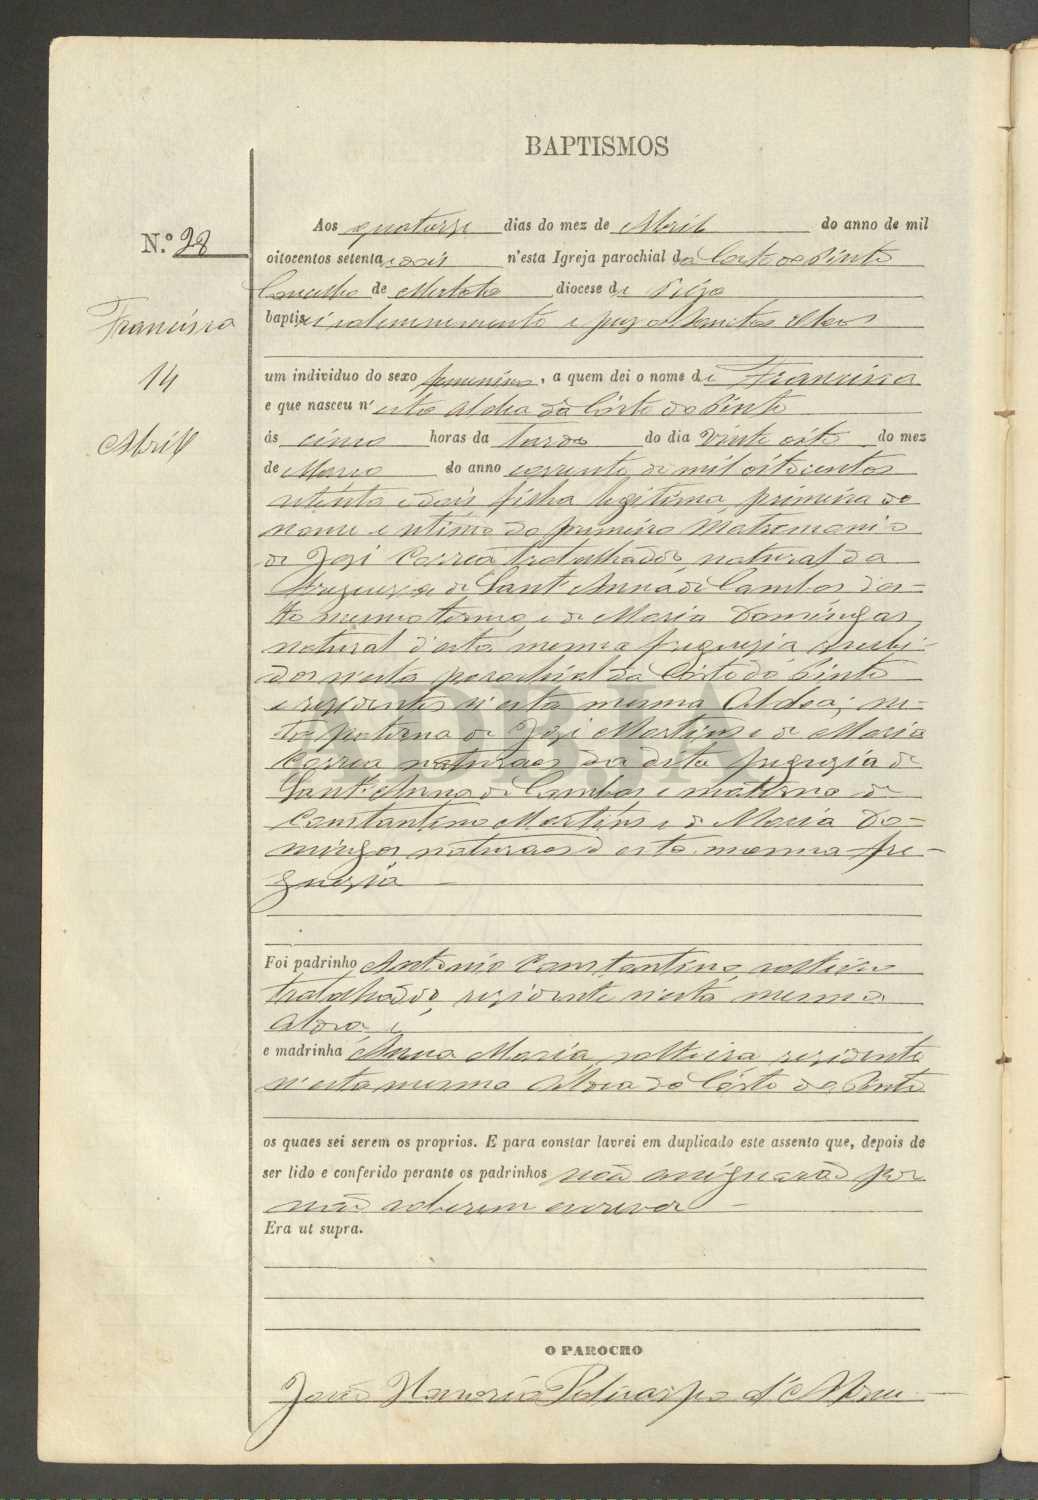 BAPTISMOS
N.º 28
Francisca
14
Abril
Aos quatorze dias do mez de Abril do anno de mil
oitocentos setenta e dois n'esta Igreja parochial da Corte do Pinto
Concelho de Mertola diocese de Beja
baptizei solemnemente e puz os Sanctos Oleos
um individuo do sexo femenino, a quem dei o nome de Francisca
e que nasceu n'esta Aldea da Côrte do Pinto
ás cinco horas da tarde do dia vinte oito do mez
de Março do anno corrente de mil oitocentos
setenta e dois filha legitima primeira do
nome e setima do primeiro Matremonio
de Jozé Correa trabalhador natural da
Freguezia de Sant'Anna de Cambas d'es-
te mesmo termo e de Maria Domingas
natural d'esta mesma freguezia recebi-
dos n'esta parochial da Côrte do Pinto
e rezidentes n'esta mesma Aldea; ne-
ta paterna de Jozé Martins e de Maria
Correa naturaes da dita freguezia de
Sant'Anna de Cambas e materna de
Constantino Martins e de Maria Do-
mingas naturaes d'esta mesma fre-
guezia
Foi padrinho Antonio Constantino solteiro
trabalhador rezidente n'esta mesma
Aldea e
e madrinha Anna Maria solteira rezidente
n'esta mesma Aldea da Côrte do Pinto
os quaes sei serem os proprios. E para constar lavrei em duplicado este assento que, depois de
ser lido e conferido perante os padrinhos não assignarão por
não saberem escrever
Era ut supra.
O PAROCHO
João Honorio Policarpo d'Abreu
ADBJA